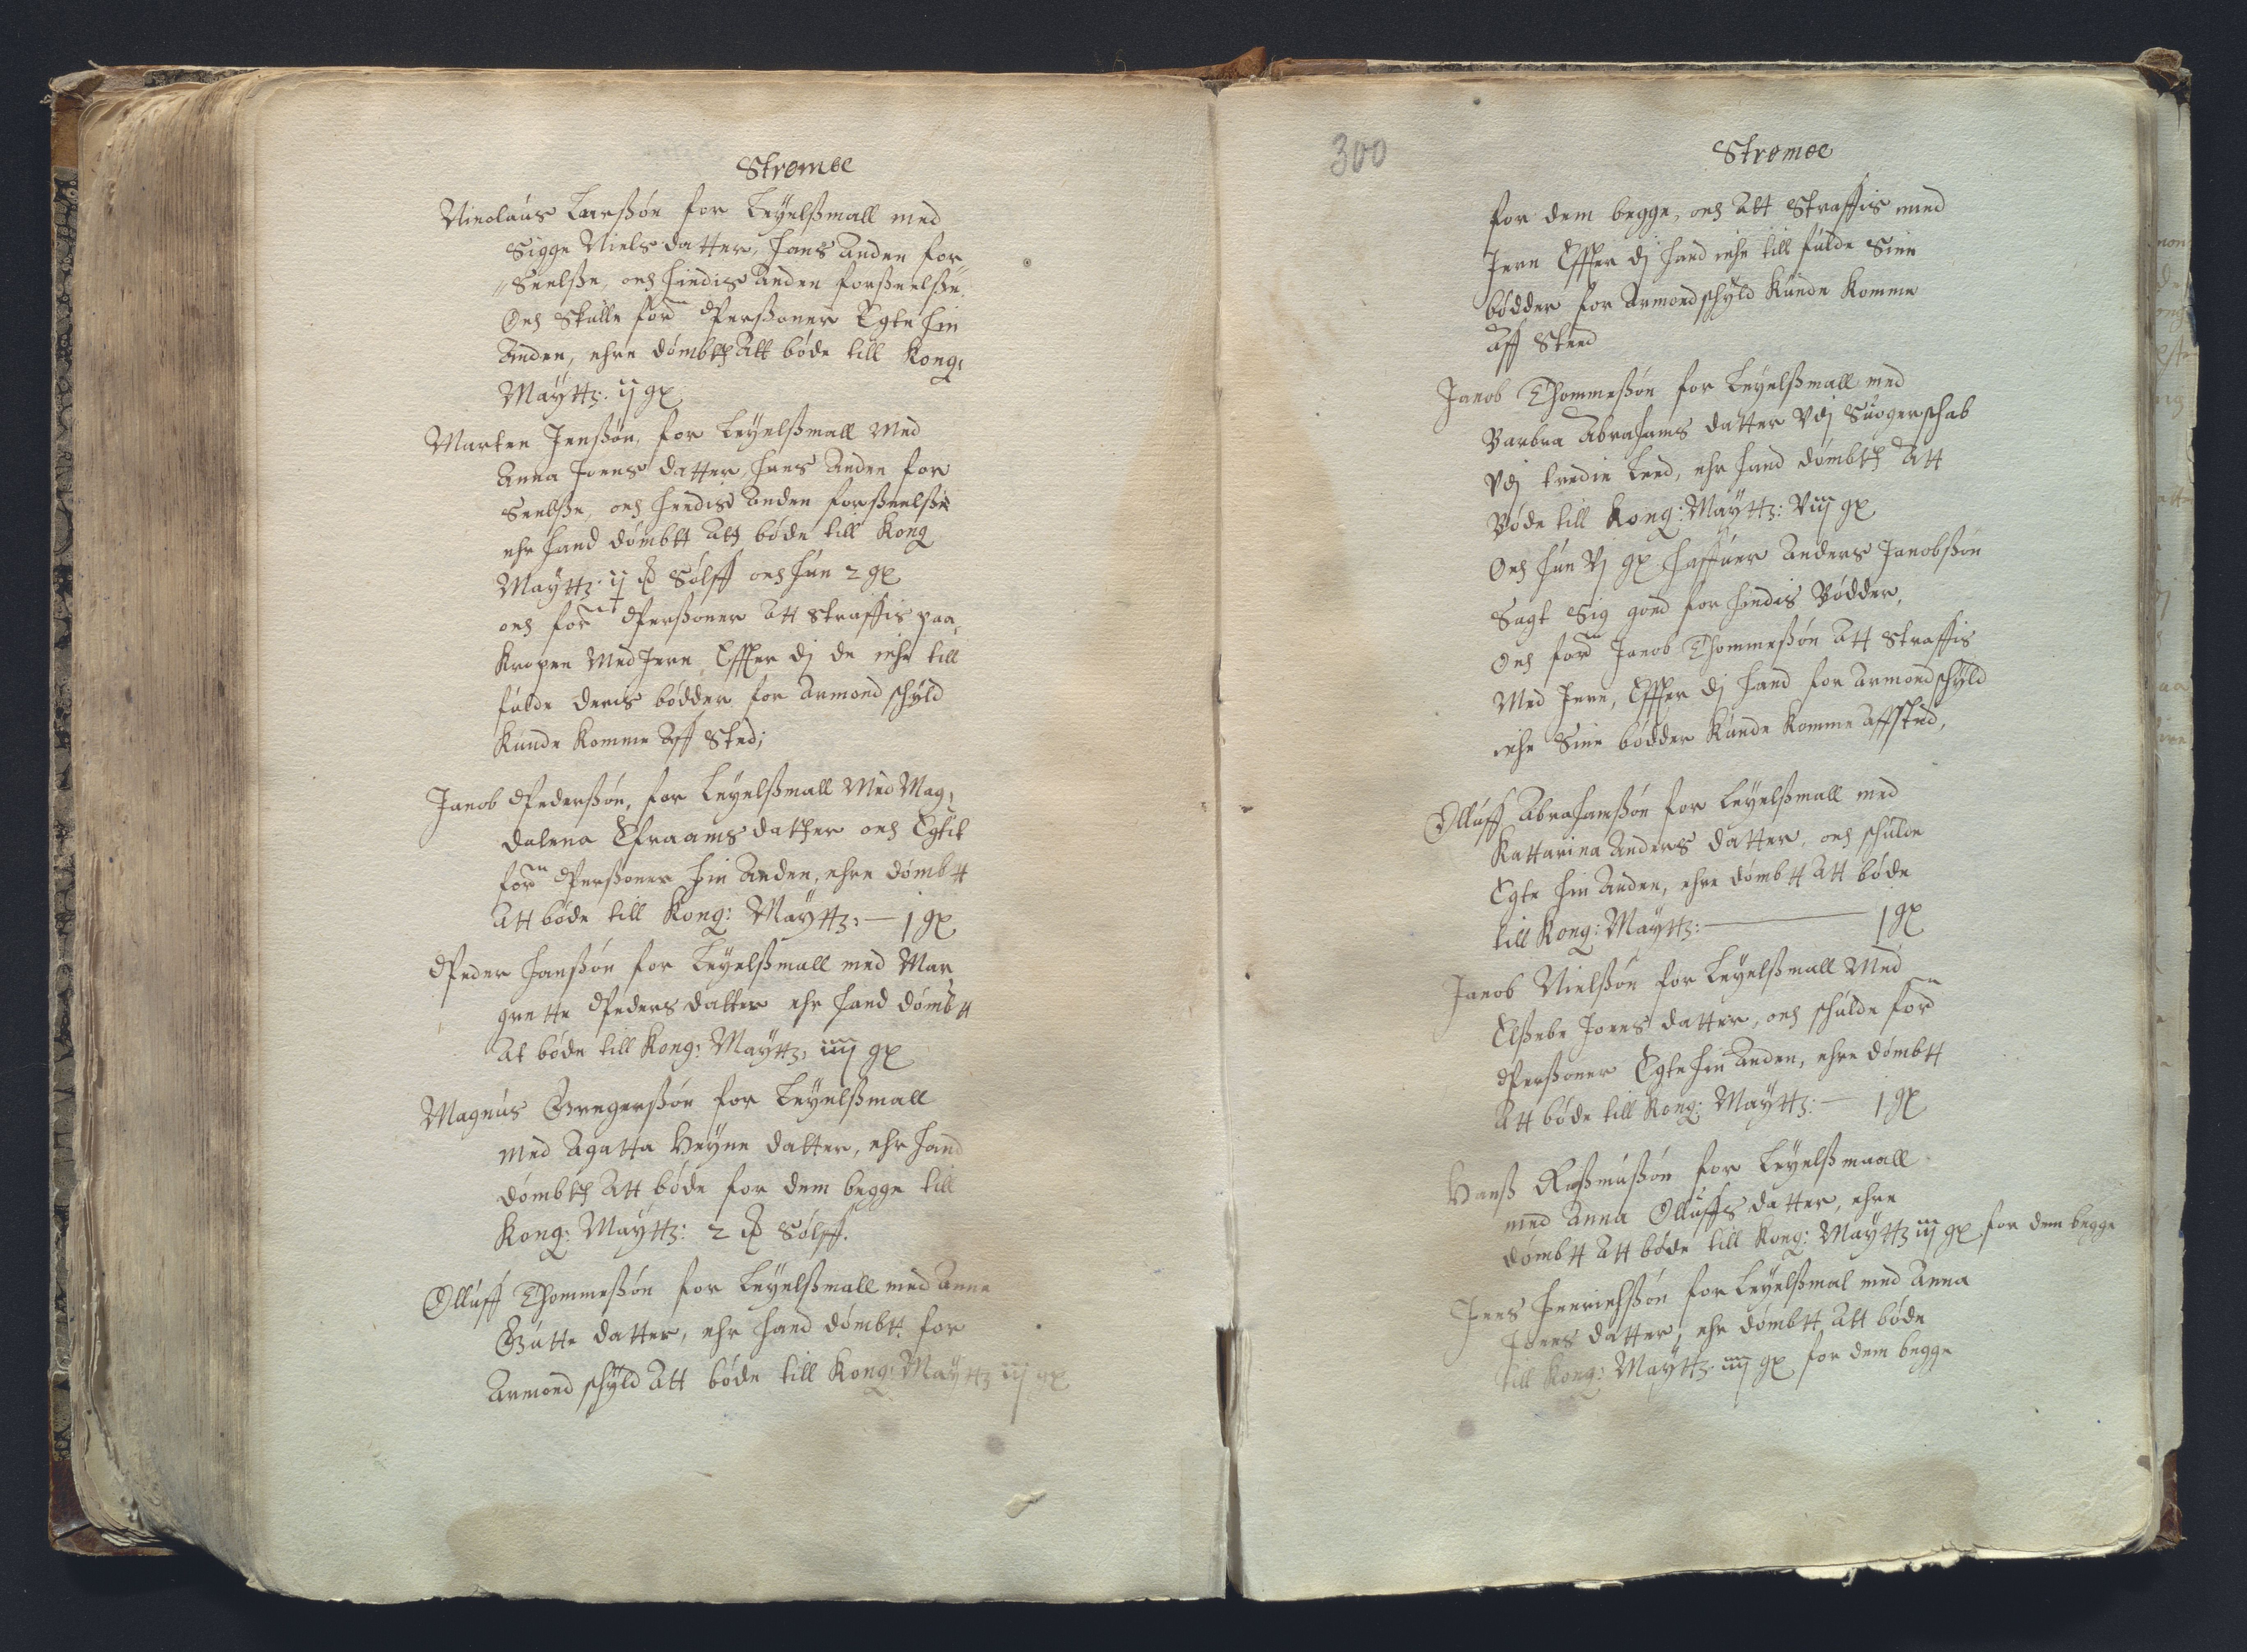 Strømøe
Nicolaus Larßøn for Leyelßmall med
Sigge Niels datter, hans Anden for-
seelße, och hindis Anden forßeelße.
Och skulle forn Perßoner Egte hin
Anden, ehre dømbtt Att bøde till Kong:
Maytts. ij gx
Marten Jenßøn, for Leyelßmall Med
Anna Joens datter, hans Anden for
seelße, och hendis Anden forßeelße
ehr hand dømbtt Att bøde till Kong
Maytts. ij Sølff och hun 2 gx
och forn Perßoner Att straffis paa
Kropen Med Jern, Effter dj de iche till
fulde deris bødder for Armond schyld
Kunde Komme Aff Sted;
Jacob Pederßøn, for Leyelßmall Med Mag,
dalena Efraams datter och Egtit
forn Perßoner hin Anden, ehre dømbtt
Att bøde till Kong: Maytts: — j gx
Peder Hanßøn for Leyelßmall med Mar
grette Peders datter ehr hand dømbtt
At bøde till Kong: Maytts: iiij gx
Magnus Gregerßøn for Leyelßmall
med Agatta Heyne datter, ehr hand
dømbtt Att bøde for dem begge till
Kong: Maytts: 2 Sølff.
Olluff Thommeßøn for Leyelßmall med Anne
Gutte datter, ehr hand dømbtt for
Armond schyld Att bøde till Kong: Maytts iij gx
300
Strømøe
for dem begge, och Att Straffis med
Jern Effter dj hand iche till fulde Sine
bødder for Armond schyld Kunde Komme
Aff Sted
Jacob Thommeßøn for Leyelßmall med
Barbra Abrahams datter Vdj Suogerschab
Vdj tredie Leed, ehr hand dømbtt Att
Bøde till Kong: Maytts: Viij gx
Och hun Vj gx haffuer Anders Jacobßøn
Sagt Sig goed for hindis Bødder,
Och forn Jacob Thommeßøn Att Straffis
Med Jern, Effter dj hand for Armond schyld
iche Sine bødder Kunde Komme Affsted,
Olluff Abrahamßøn for Leyelßmall med
Kattarina Anders datter, och schulde
Egte hin Anden, ehre dømbtt Att bøde
till Kong: Maytts: — j gx
Jacob Nielßøn for Leyelßmall Med
Elßebe Joens datter, och schulde forn
Perßoner Egte hin Anden, ehre dømbtt
Att bøde till Kong: Maytts: — j gx
Hanß Raßmußøn for Leyelßmaall
med Anna Olluffs datter, ehre
dømbtt Att bøde till Kong: Maytts iij gx for dem begge
Jens Henrichßøn for Leyelßmal med Anna
Joens datter, ehr dømbtt Att bøde
till Kong: Maytts. iiij gx for dem begge